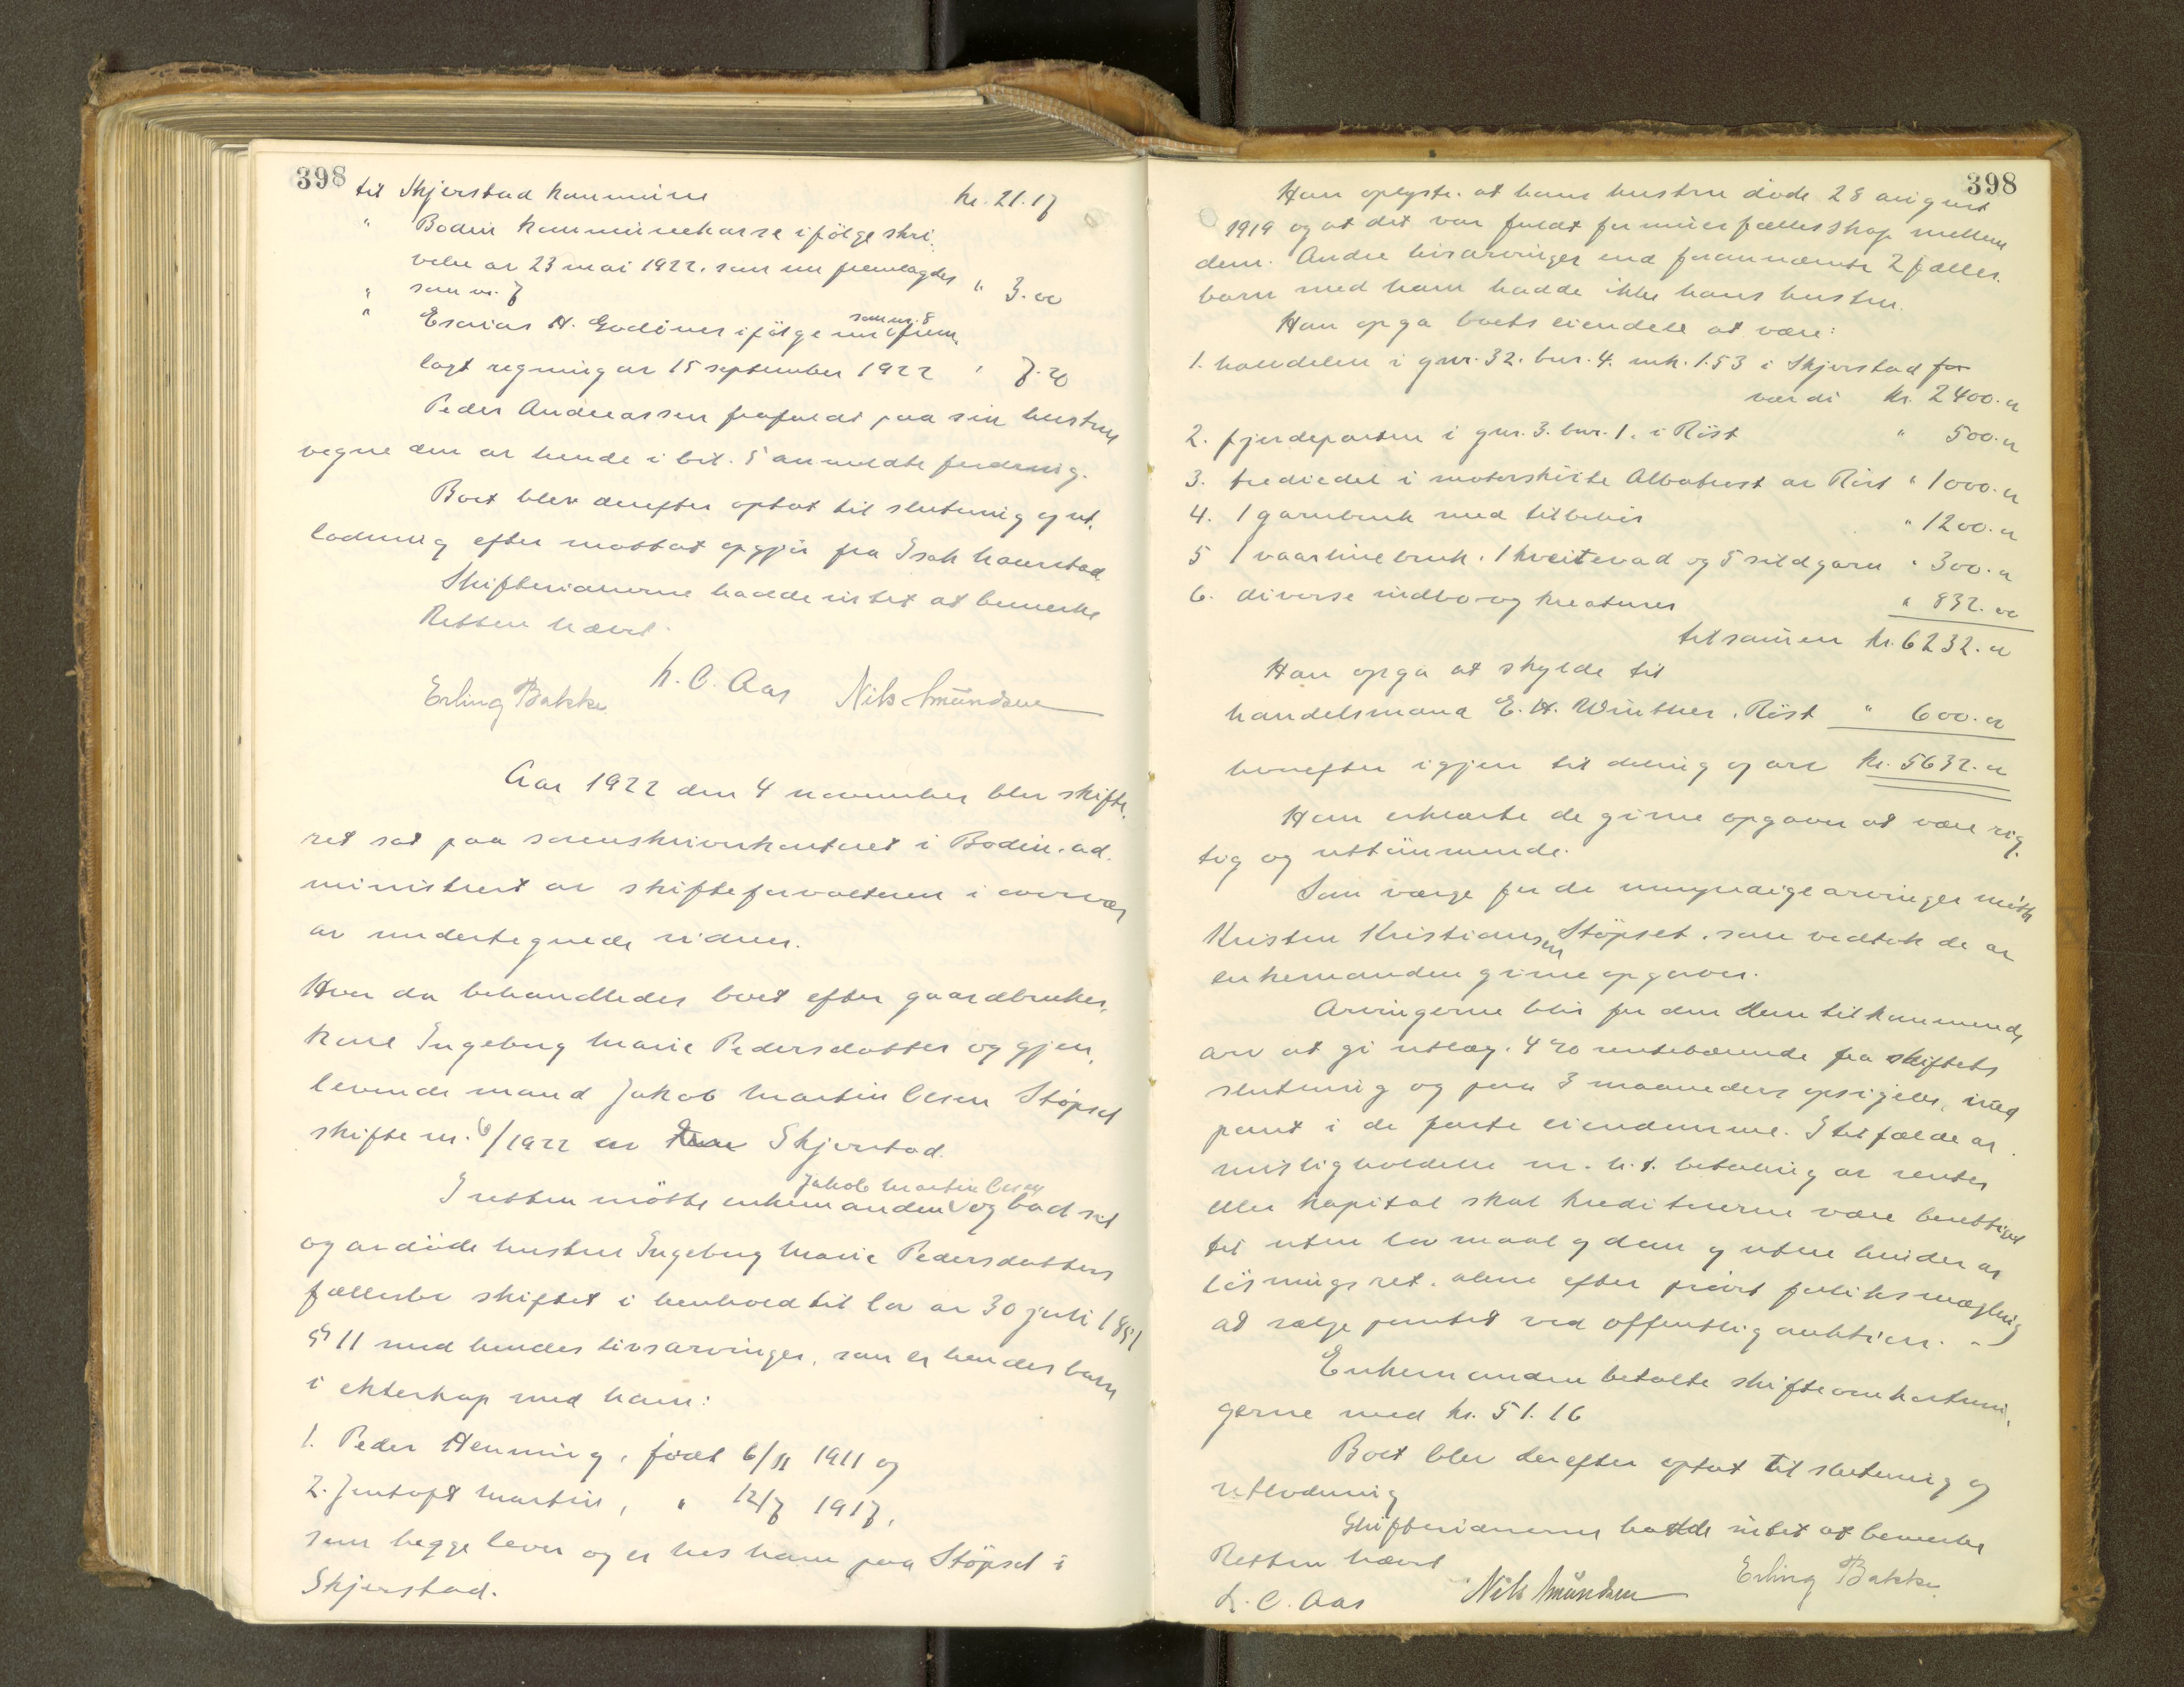 398
til Skjerstad kommune kr. 21.17
" Bodin kommunekasse ifølge skri-
velse av 23 mai 1922, som nu fremlagdes
som nr. 7 " 3.00
" Esaias H. Godønes ifølge nu som nr. 8 frem-
lagt regning av 15 september 1922 " 7.20
Peder Andreassen frafaldt paa sin hustrus
vegne den av hende i bil. 5 anmeldte fordring.
Boet blev derefter optat til slutning og ut-
lodning efter mottat opgjør fra Isak Naurstad
Skiftevidnerne hadde intet at bemerke
Retten hævet.
Erling Bakke K. C. Aas Nils Amundsen
Aar 1922 den 4 november blev skifte-
ret sat paa sorenskriverkontoret i Bodin, ad-
ministrert av skifteforvalteren i overvær
av undertegnede vidner.
Hvor da behandledes boet efter gaardbruker-
kone Ingeborg Marie Pedersdatter og gjen-
levende mand Jakob Martin Olsen Støpset
skifte nr. 6/1922 av Skjerstad.
I retten møtte enkemanden Jakob Martin Olsen og bad sit
og avdøde hustru Ingeborg Marie Pedersdatters
fællesbo skiftet i henhold til lov av 30 juli 1851
§ 11 med hendes livsarvinger, som er hendes barn
i ekteskap med ham:
1. Peder Henning, født 6/11 1911 og
2. Jentoft Martin, " 12/7 1917,
som begge lever og er hos ham paa Støpset i
Skjerstad.
398
Han oplyste at hans hustru døde 28 august
1919 og at det var fuldt formuesfællesskap mellem
dem. Andre livsarvinger end forannævnte 2 fælles-
barn med ham hadde ikke hans hustru.
Han opga boets eiendele at være:
1. halvdelen i gnr. 32. bnr. 4. mk. 1.53 i Skjerstad for
værdi kr. 2400.00
2. fjerdeparten i gnr. 3. bnr. 1. i Røst " 500.00
3. trediedel i motorskøite Albatrost av Røst " 1000.00
4. 1 garnbruk med tilbehør " 1200.00
5 1 vaarlinebruk, 1 kveitevad og 5 sildgarn " 300.00
6. diverse indbo og kreaturer " 832.00
tilsammen kr. 6232.00
Han opga at skylde til
handelsmand E. H. Winther, Røst " 600.00
hvorefter igjen til deling og arv kr. 5632.00
Han erklærte de givne opgaver at være rig-
tig og uttømmende.
Som værge for de umyndige arvinger møtte
Kristen Kristiansen Støpset, som vedtok de av
enkemanden givne opgaver.
Arvingerne blir for den dem tilkommende
arv at gi utlæg. 4 % rentebærende fra skiftets
slutning og paa 3 maaneders opsigelse, med
pant i de faste eiendomme. I tilfælde av
misligholdelse m. h. t. betaling av renter
eller kapital skal kreditorerne være berettiget
til uten lovmaal og dom og uten hinder av
løsningsret, alene efter prøvet forliksmægling
at sælge pantet ved offentlig auktion. -
Enkemanden betalte skifteomkostnin-
gerne med kr. 51.16
Boet blev derefter optat til slutning og
utlodning
Skiftevidnerne hadde intet at bemerke
Retten hævet
K. C. Aas Nils Amundsen Erling Bakke